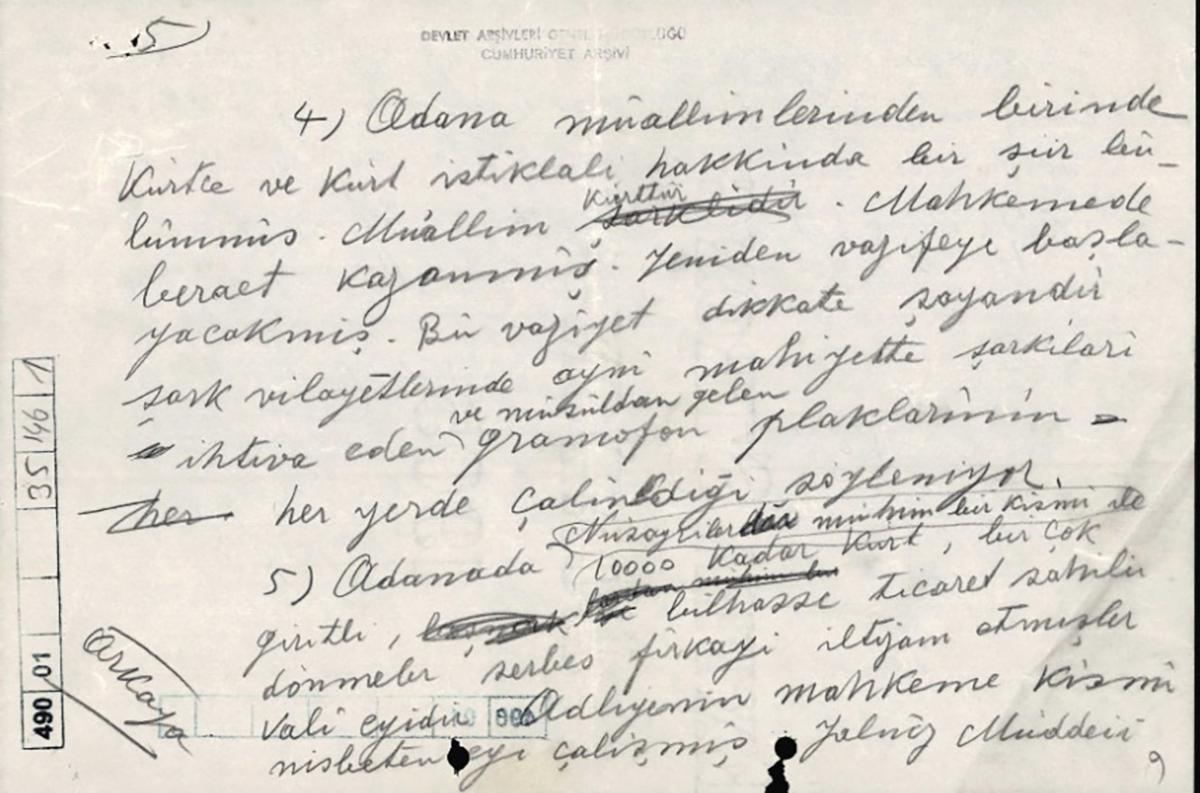 5
DEVLET ARŞİVLERİ GENEL MÜDÜRLÜĞÜ
CUMHURİYET ARŞİVİ
4) Adana müallimlerinden birinde
Kürtce ve Kürt istiklali hakkinda bir şiir bu-
lunmuş. Müallim Kürttür şarklidir. Mahkemede
beraet kazanmiş. Yeniden vazifeye başla-
yacakmiş. Bu vaziyet dikkate şayandir
şark vilayetlerinde ayni mahiyette şarkilari
ihtiva eden ve musuldan gelen gramofon plaklarinin
her her yerde çalindiği söyleniyor.
Nusayrilerden mühim bir kismi ile
5) Adanada 10000 kadar Kürt, bir çok
giritli, bilhasse ticaret sahibi
dönmeler serbes firkayi iltizam etmişler
Vali eyidir Adliyenin mahkeme kismi
nisbeten eyi çalişmiş Yalniz Müddeii
Arkaya
490 01 35 146 1
9